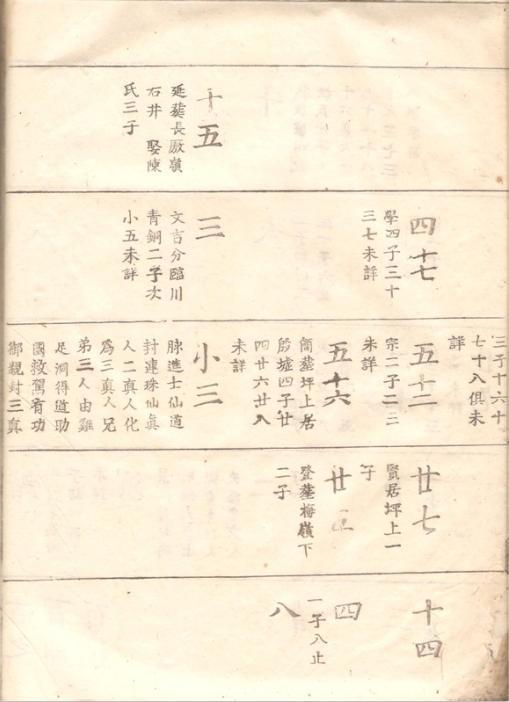 十五
延葬長厫嶺
石井 娶陳
氏三子
四十七
學四子三十
三七未詳
三
文吉分臨川
青銅二子次
小五未詳
三子十六十
七十八俱未
詳
五十二
宗二子二三
未詳
五十六
簡葬坪上居
墟四子廿
四廿六廿八
未詳
小三
脉進士仙道
封連珠仙眞
人二真人化
爲三真人兄
弟三人由難
足洞得道助
國救駕有功
御親封三真
廿七
賢居坪上一
子
廿
登葬梅嶺下
二子
十四
四
一子八止
八